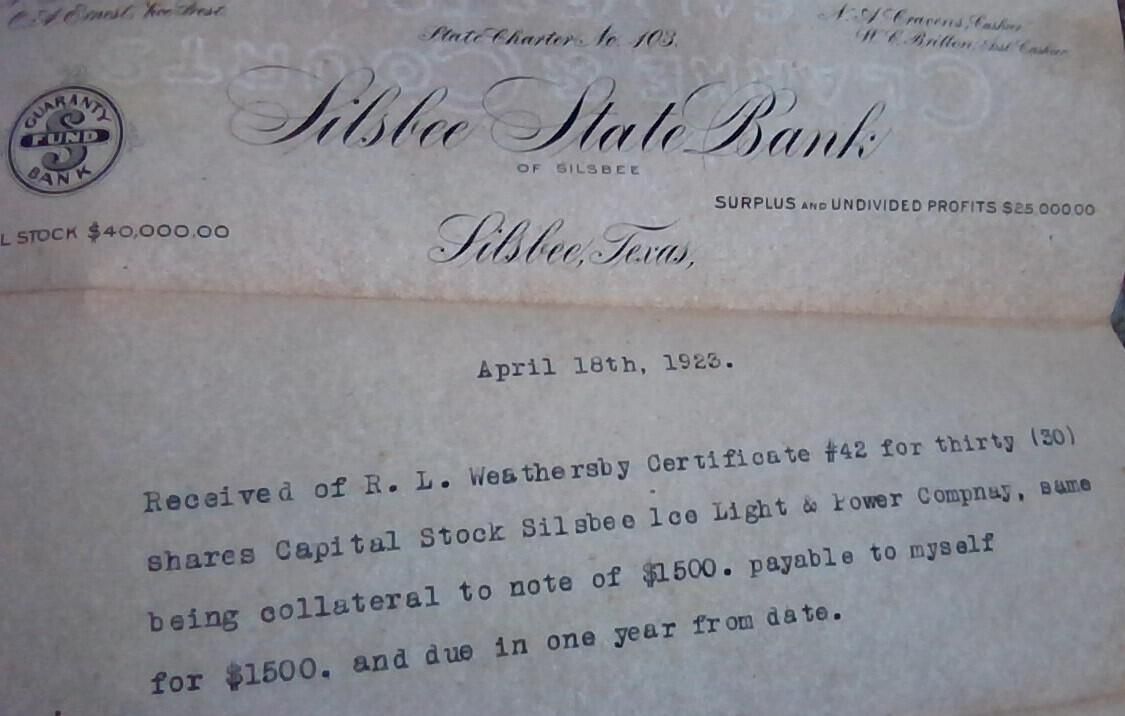 C. A. Ernest, Vice Prest.
N. A. Cravens, Cashier
State Charter No. 103.
W. C. Britton, Asst Cashier
GUARANTY
FUND
BANK
Silsbee State Bank
OF SILSBEE
SURPLUS AND UNDIVIDED PROFITS $25,000.00
L STOCK $40,000.00
Silsbee, Texas,
April 18th, 1923.
Received of R. L. Weathersby Certificate #42 for thirty (30)
shares Capital Stock Silsbee Ice Light & Power Compnay, same
being collateral to note of $1500. payable to myself
for $1500. and due in one year from date.